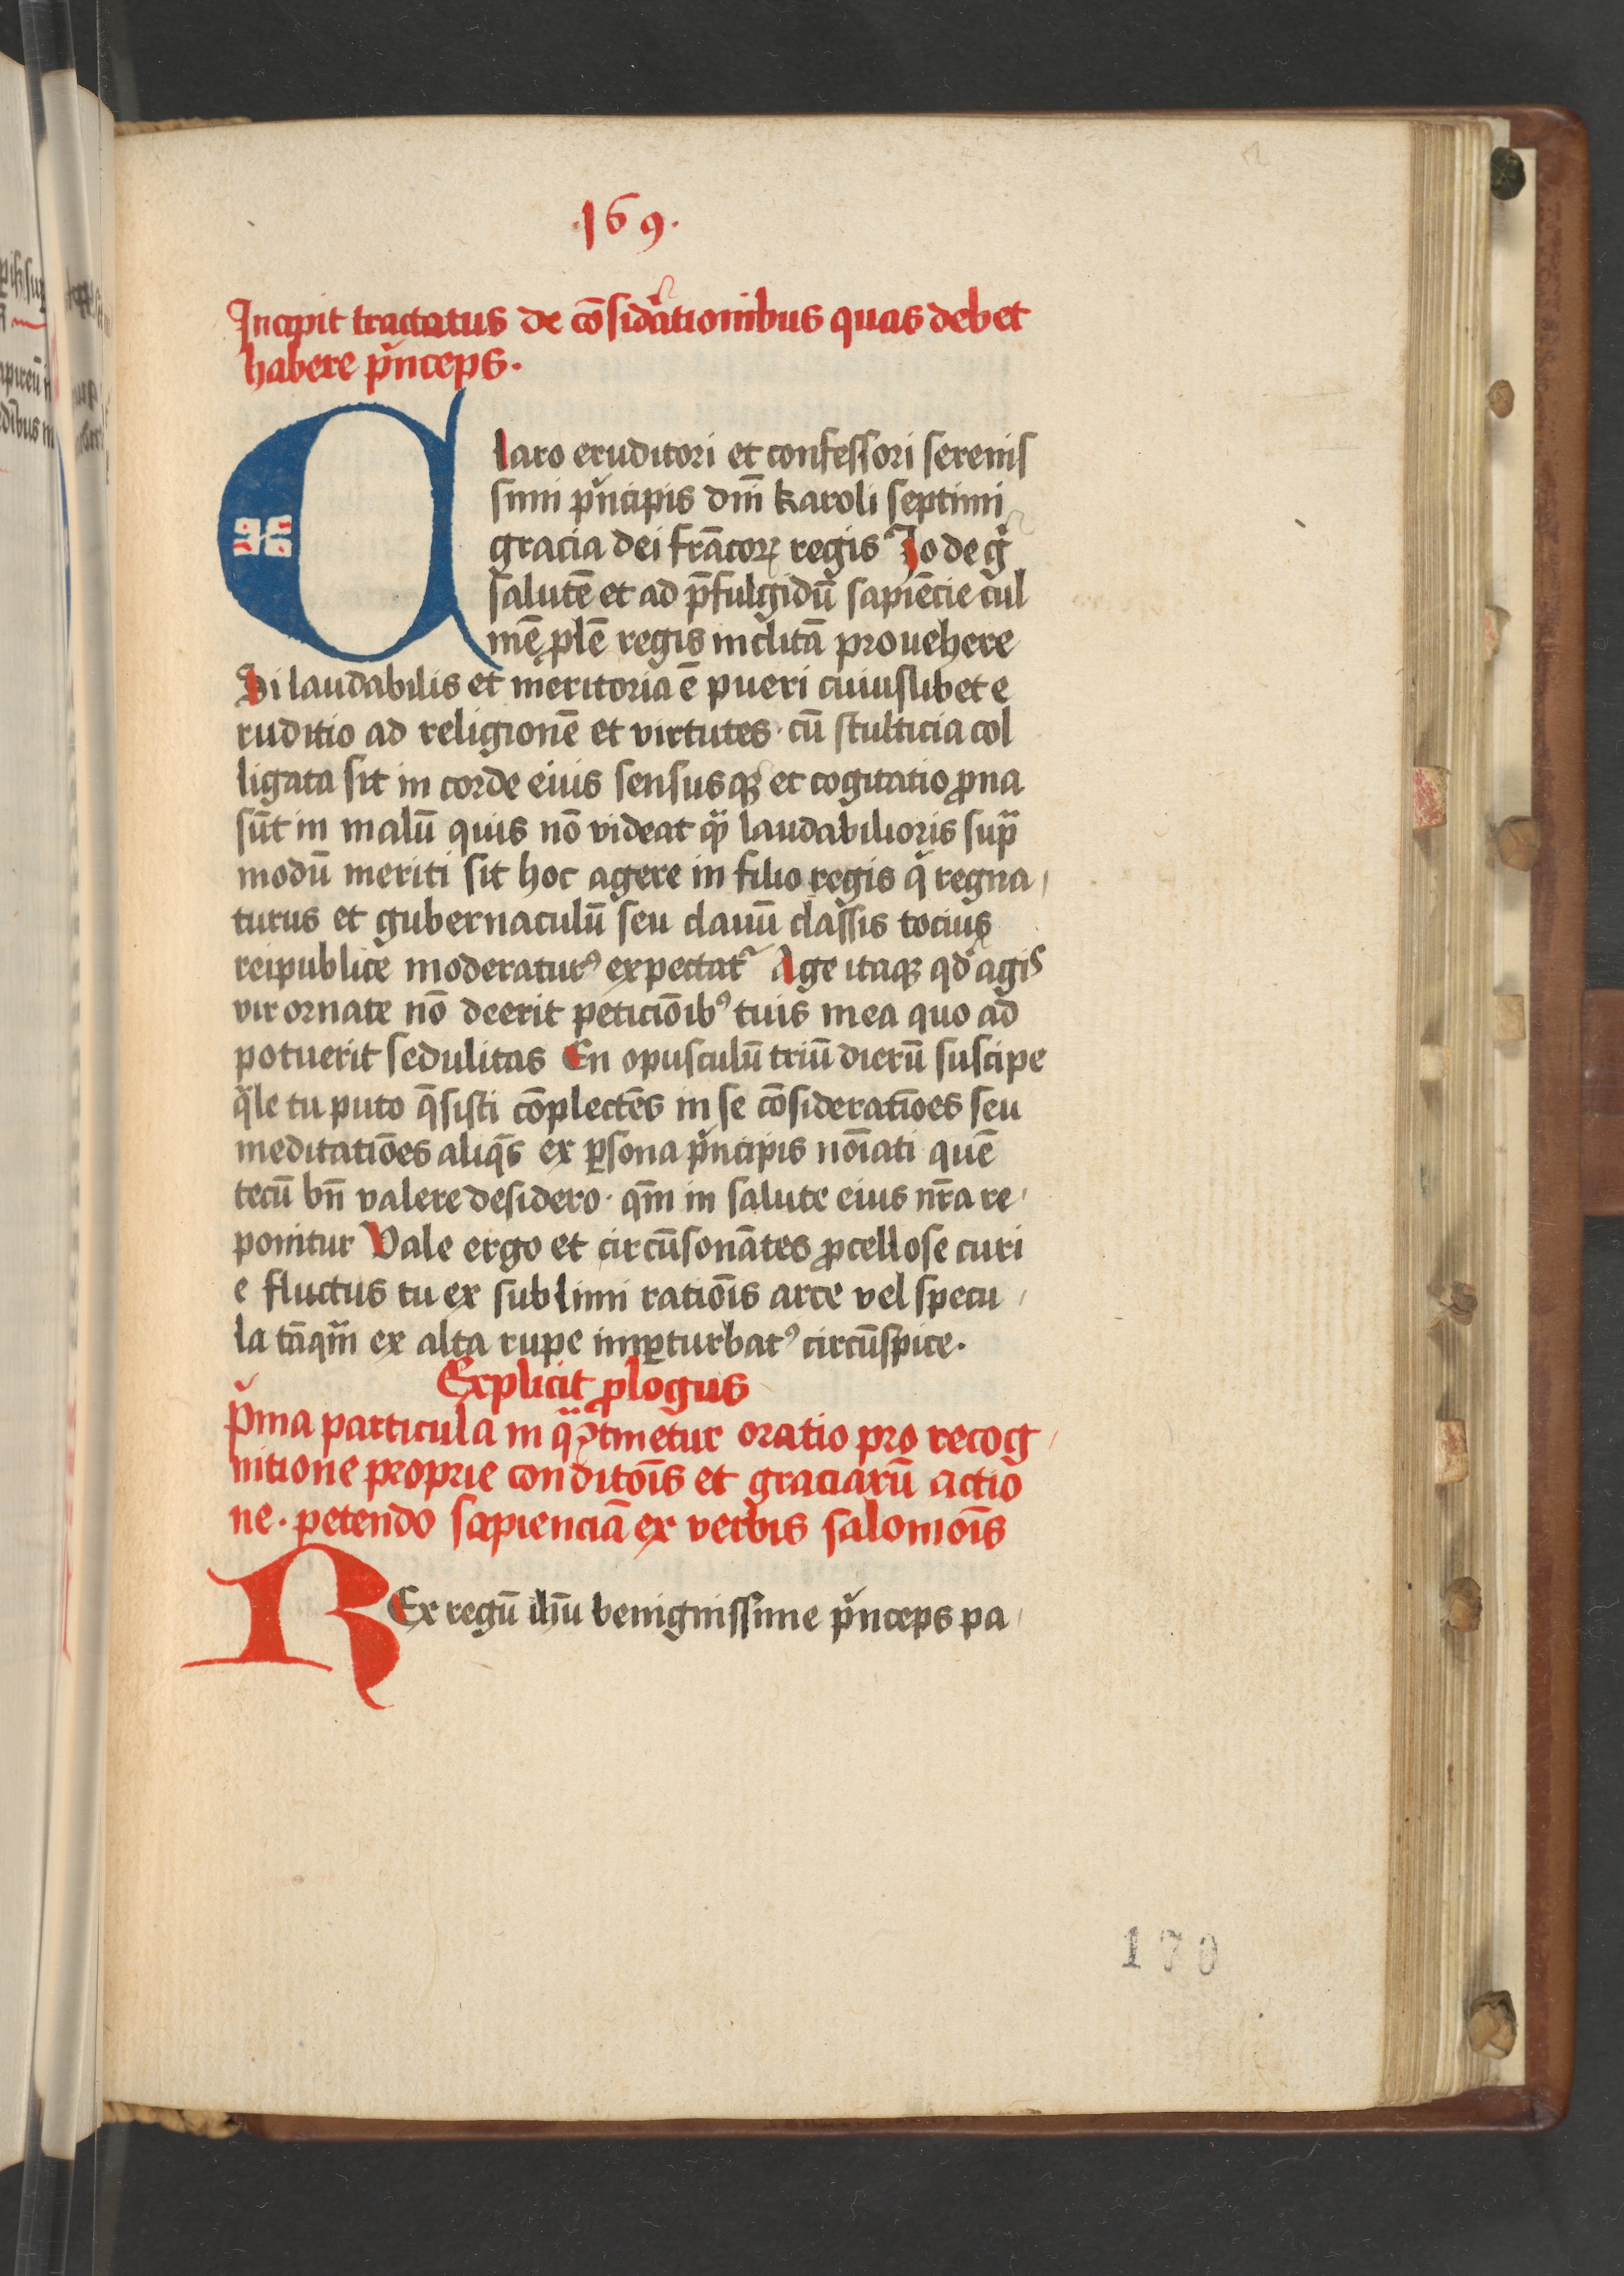 .169.
Incipit tractatus de cōsid᷑ationibus quas debet
habere pͥnceps.
Claro eruditori et confessori serenis
simi pͥncipis dn̄i karoli septimi
gracia dei frācoꝝ regis Jo de g᷑
salutē et ad p̄fulgidū sapiēcie cul
mē ꝓlē regis inclitā prouehere
Si laudabilis et meritoria ē pueri cuiuslibet e
ruditio ad religionē et virtutes · cū stulticia col
ligata sit in corde eius sensusqꝫ et cogitatio ꝓna
sūt in malū quis nō videat qͣꝫ laudabilioris supᷓ
modū meriti sit hoc agere in filio regis qͥ regna
turus et gubernaculū seu clauū classis tocius
reipublice moderaturꝰ expectatᷣ Age itaqꝫ qd̕ agis
vir ornate nō deerit peticiōibꝰ tuis mea quo ad
potuerit sedulitas En opusculū triū dierū suscipe
qͣle tu puto q̄sisti cōplectēs in se cōsideratiōes seu
meditatiōes aliqͣs ex ꝑsona pͥncipis noīati quē
tecū bn̄ valere desidero · qm̄ in salute eius nr̄a re
ponitur Vale ergo et circūsonātes ꝓcellose curi
e fluctus tu ex sublimi ratiōis arce vel specu
la tāqᷓm ex alta rupe imꝑturbatꝰ circūspice.
Explicit ꝓlogus
pͥma particula in qᷓ ꝯtinetur oratio pro recog
nitione proprie conditōis et graciarū actio
ne · petendo sapienciā ex verbis salomōis
REx regū ihū benignissime pͥnceps pa
170